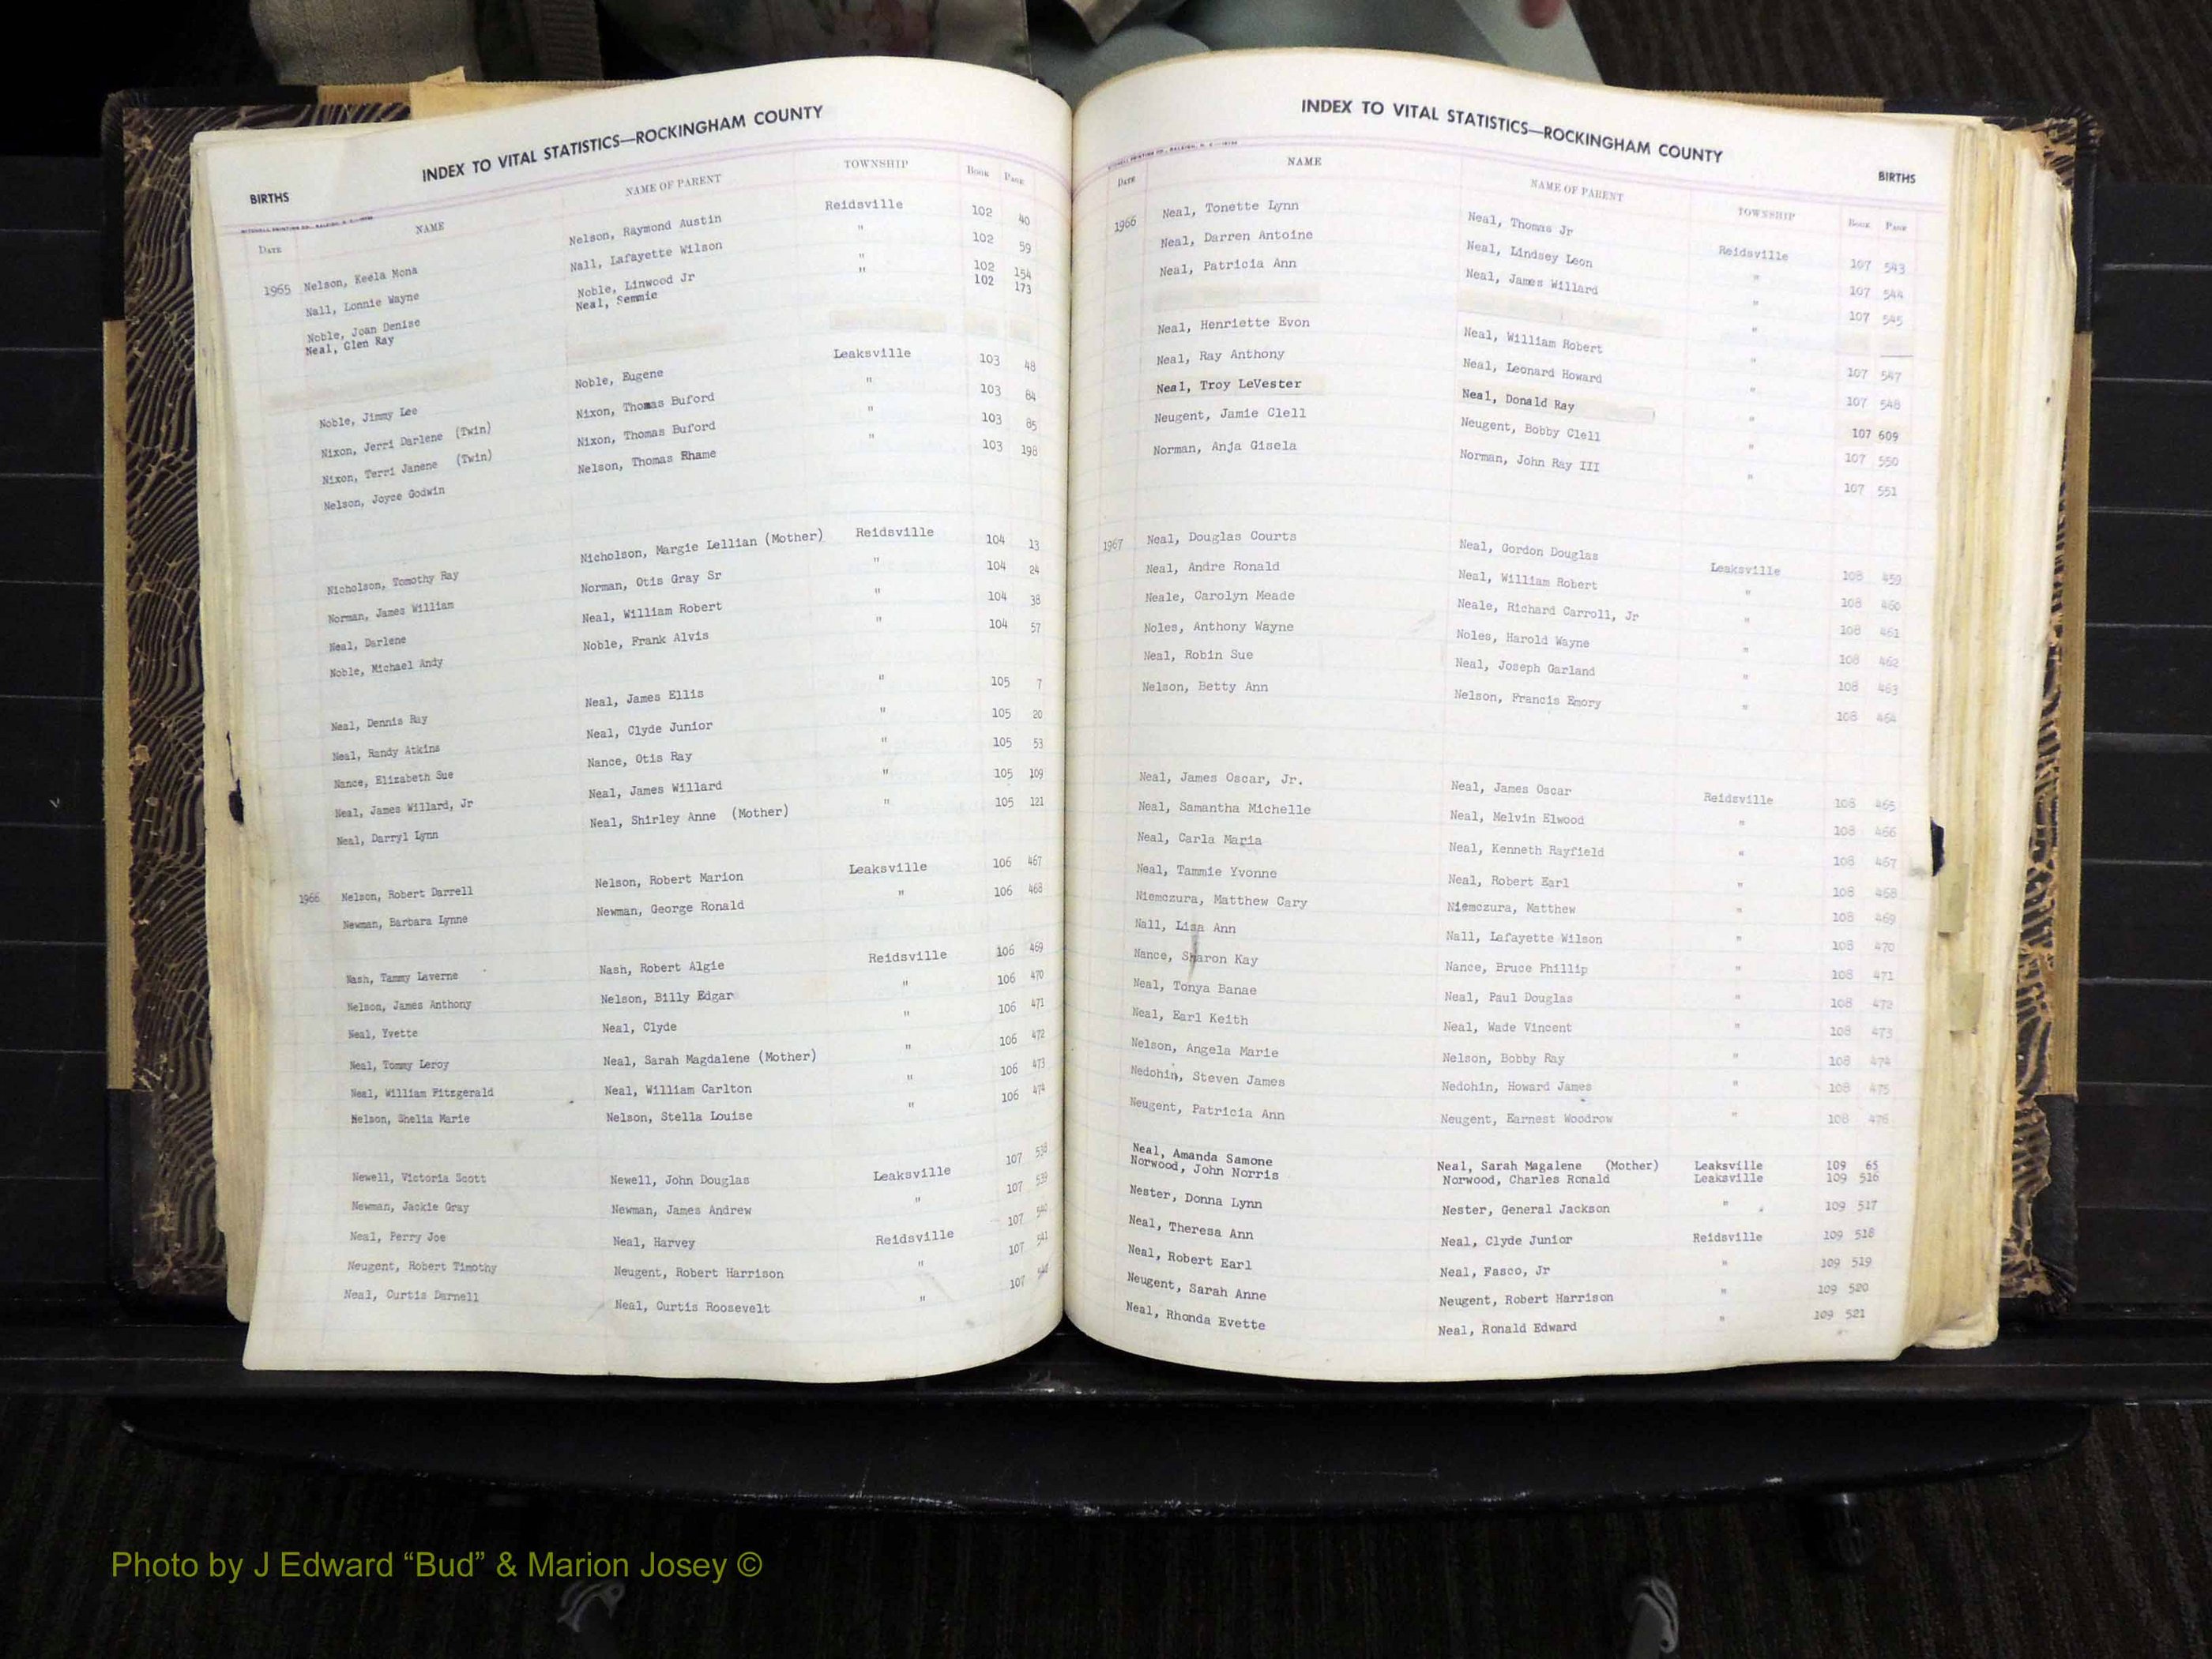 INDEX TO VITAL STATISTICS—ROCKINGHAM COUNTY
BIRTHS
DATE NAME NAME OF PARENT TOWNSHIP BOOK PAGE
1965 Nelson, Keela Mona Nelson, Raymond Austin Reidsville 102 40
Nall, Lonnie Wayne Nall, Lafayette Wilson " 102 59
Noble, Joan Denise Noble, Linwood Jr " 102 154
Neal, Glen Ray Neal, Semmie " 102 173
Noble, Jimmy Lee Noble, Eugene Leaksville 103 48
Nixon, Jerri Darlene (Twin) Nixon, Thomas Buford " 103 84
Nixon, Terri Janene (Twin) Nixon, Thomas Buford " 103 85
Nelson, Joyce Godwin Nelson, Thomas Rhame " 103 198
Nicholson, Tomothy Ray Nicholson, Margie Lellian (Mother) Reidsville 104 13
Norman, James William Norman, Otis Gray Sr " 104 24
Neal, Darlene Neal, William Robert " 104 38
Noble, Michael Andy Noble, Frank Alvis " 104 57
Neal, Dennis Ray Neal, James Ellis " 105 7
Neal, Randy Atkins Neal, Clyde Junior " 105 20
Nance, Elizabeth Sue Nance, Otis Ray " 105 53
Neal, James Willard, Jr Neal, James Willard " 105 109
Neal, Darryl Lynn Neal, Shirley Anne (Mother) " 105 121
1966 Nelson, Robert Darrell Nelson, Robert Marion Leaksville 106 467
Newman, Barbara Lynne Newman, George Ronald " 106 468
Nash, Tammy Laverne Nash, Robert Algie Reidsville 106 469
Nelson, James Anthony Nelson, Billy Edgar " 106 470
Neal, Yvette Neal, Clyde " 106 471
Neal, Tommy Leroy Neal, Sarah Magdalene (Mother) " 106 472
Neal, William Fitzgerald Neal, William Carlton " 106 473
Nelson, Shelia Marie Nelson, Stella Louise " 106 474
Newell, Victoria Scott Newell, John Douglas Leaksville 107 538
Newman, Jackie Gray Newman, James Andrew " 107 539
Neal, Perry Joe Neal, Harvey Reidsville 107 540
Neugent, Robert Timothy Neugent, Robert Harrison " 107 541
Neal, Curtis Darnell Neal, Curtis Roosevelt " 107
INDEX TO VITAL STATISTICS—ROCKINGHAM COUNTY
BIRTHS
DATE NAME NAME OF PARENT TOWNSHIP BOOK PAGE
1966 Neal, Tonette Lynn Neal, Thomas Jr Reidsville 107 543
Neal, Darren Antoine Neal, Lindsey Leon " 107 544
Neal, Patricia Ann Neal, James Willard " 107 545
"
Neal, Henriette Evon Neal, William Robert " 107 547
Neal, Ray Anthony Neal, Leonard Howard " 107 548
Neal, Troy LeVester Neal, Donald Ray " 107 609
Neugent, Jamie Clell Neugent, Bobby Clell " 107 550
Norman, Anja Gisela Norman, John Ray III " 107 551
1967 Neal, Douglas Courts Neal, Gordon Douglas Leaksville 108 459
Neal, Andre Ronald Neal, William Robert " 108 460
Neale, Carolyn Meade Neale, Richard Carroll, Jr " 108 461
Noles, Anthony Wayne Noles, Harold Wayne " 108 462
Neal, Robin Sue Neal, Joseph Garland " 108 463
Nelson, Betty Ann Nelson, Francis Emory " 108 464
Neal, James Oscar, Jr. Neal, James Oscar Reidsville 108 465
Neal, Samantha Michelle Neal, Melvin Elwood " 108 466
Neal, Carla Maria Neal, Kenneth Rayfield " 108 467
Neal, Tammie Yvonne Neal, Robert Earl " 108 468
Niemczura, Matthew Cary Niemczura, Matthew " 108 469
Nall, Lisa Ann Nall, Lafayette Wilson " 108 470
Nance, Sharon Kay Nance, Bruce Phillip " 108 471
Neal, Tonya Banae Neal, Paul Douglas " 108 472
Neal, Earl Keith Neal, Wade Vincent " 108 473
Nelson, Angela Marie Nelson, Bobby Ray " 108 474
Nedohin, Steven James Nedohin, Howard James " 108 475
Neugent, Patricia Ann Neugent, Earnest Woodrow " 108 476
Neal, Amanda Samone Neal, Sarah Magalene (Mother) Leaksville 109 65
Norwood, John Norris Norwood, Charles Ronald Leaksville 109 516
Nester, Donna Lynn Nester, General Jackson " 109 517
Neal, Theresa Ann Neal, Clyde Junior Reidsville 109 518
Neal, Robert Earl Neal, Fasco, Jr " 109 519
Neugent, Sarah Anne Neugent, Robert Harrison " 109 520
Neal, Rhonda Evette Neal, Ronald Edward " 109 521
Photo by J Edward “Bud” & Marion Josey ©